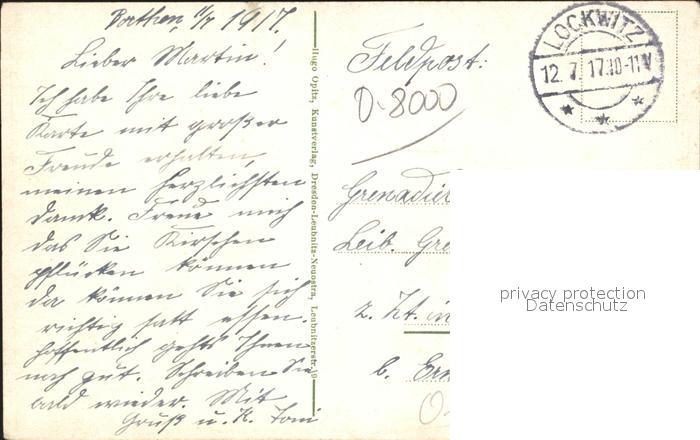 Borthen, 11/7 1917.
Lieber Martin!
Ich habe Ihre liebe
Karte mit großer
Freude erhalten,
meinen herzlichsten
Dank. Freue mich
das Sie Kirschen
pflücken können
da können Sie sich
richtig satt essen.
Hoffentlich gehts Ihnen
noch gut. Schreiben Sie
bald wieder. Mit
Gruß u. K. Toni
Hugo Opitz, Kunstverlag, Dresden-Leubnitz-Neuostra, Leubnitzerstr. 19
Feldpost:
D-8000
LOCKWITZ
12.7.17.10-11V
Grenadier
Leib. Gre
z. Zt. in
b.
privacy protection
Datenschutz